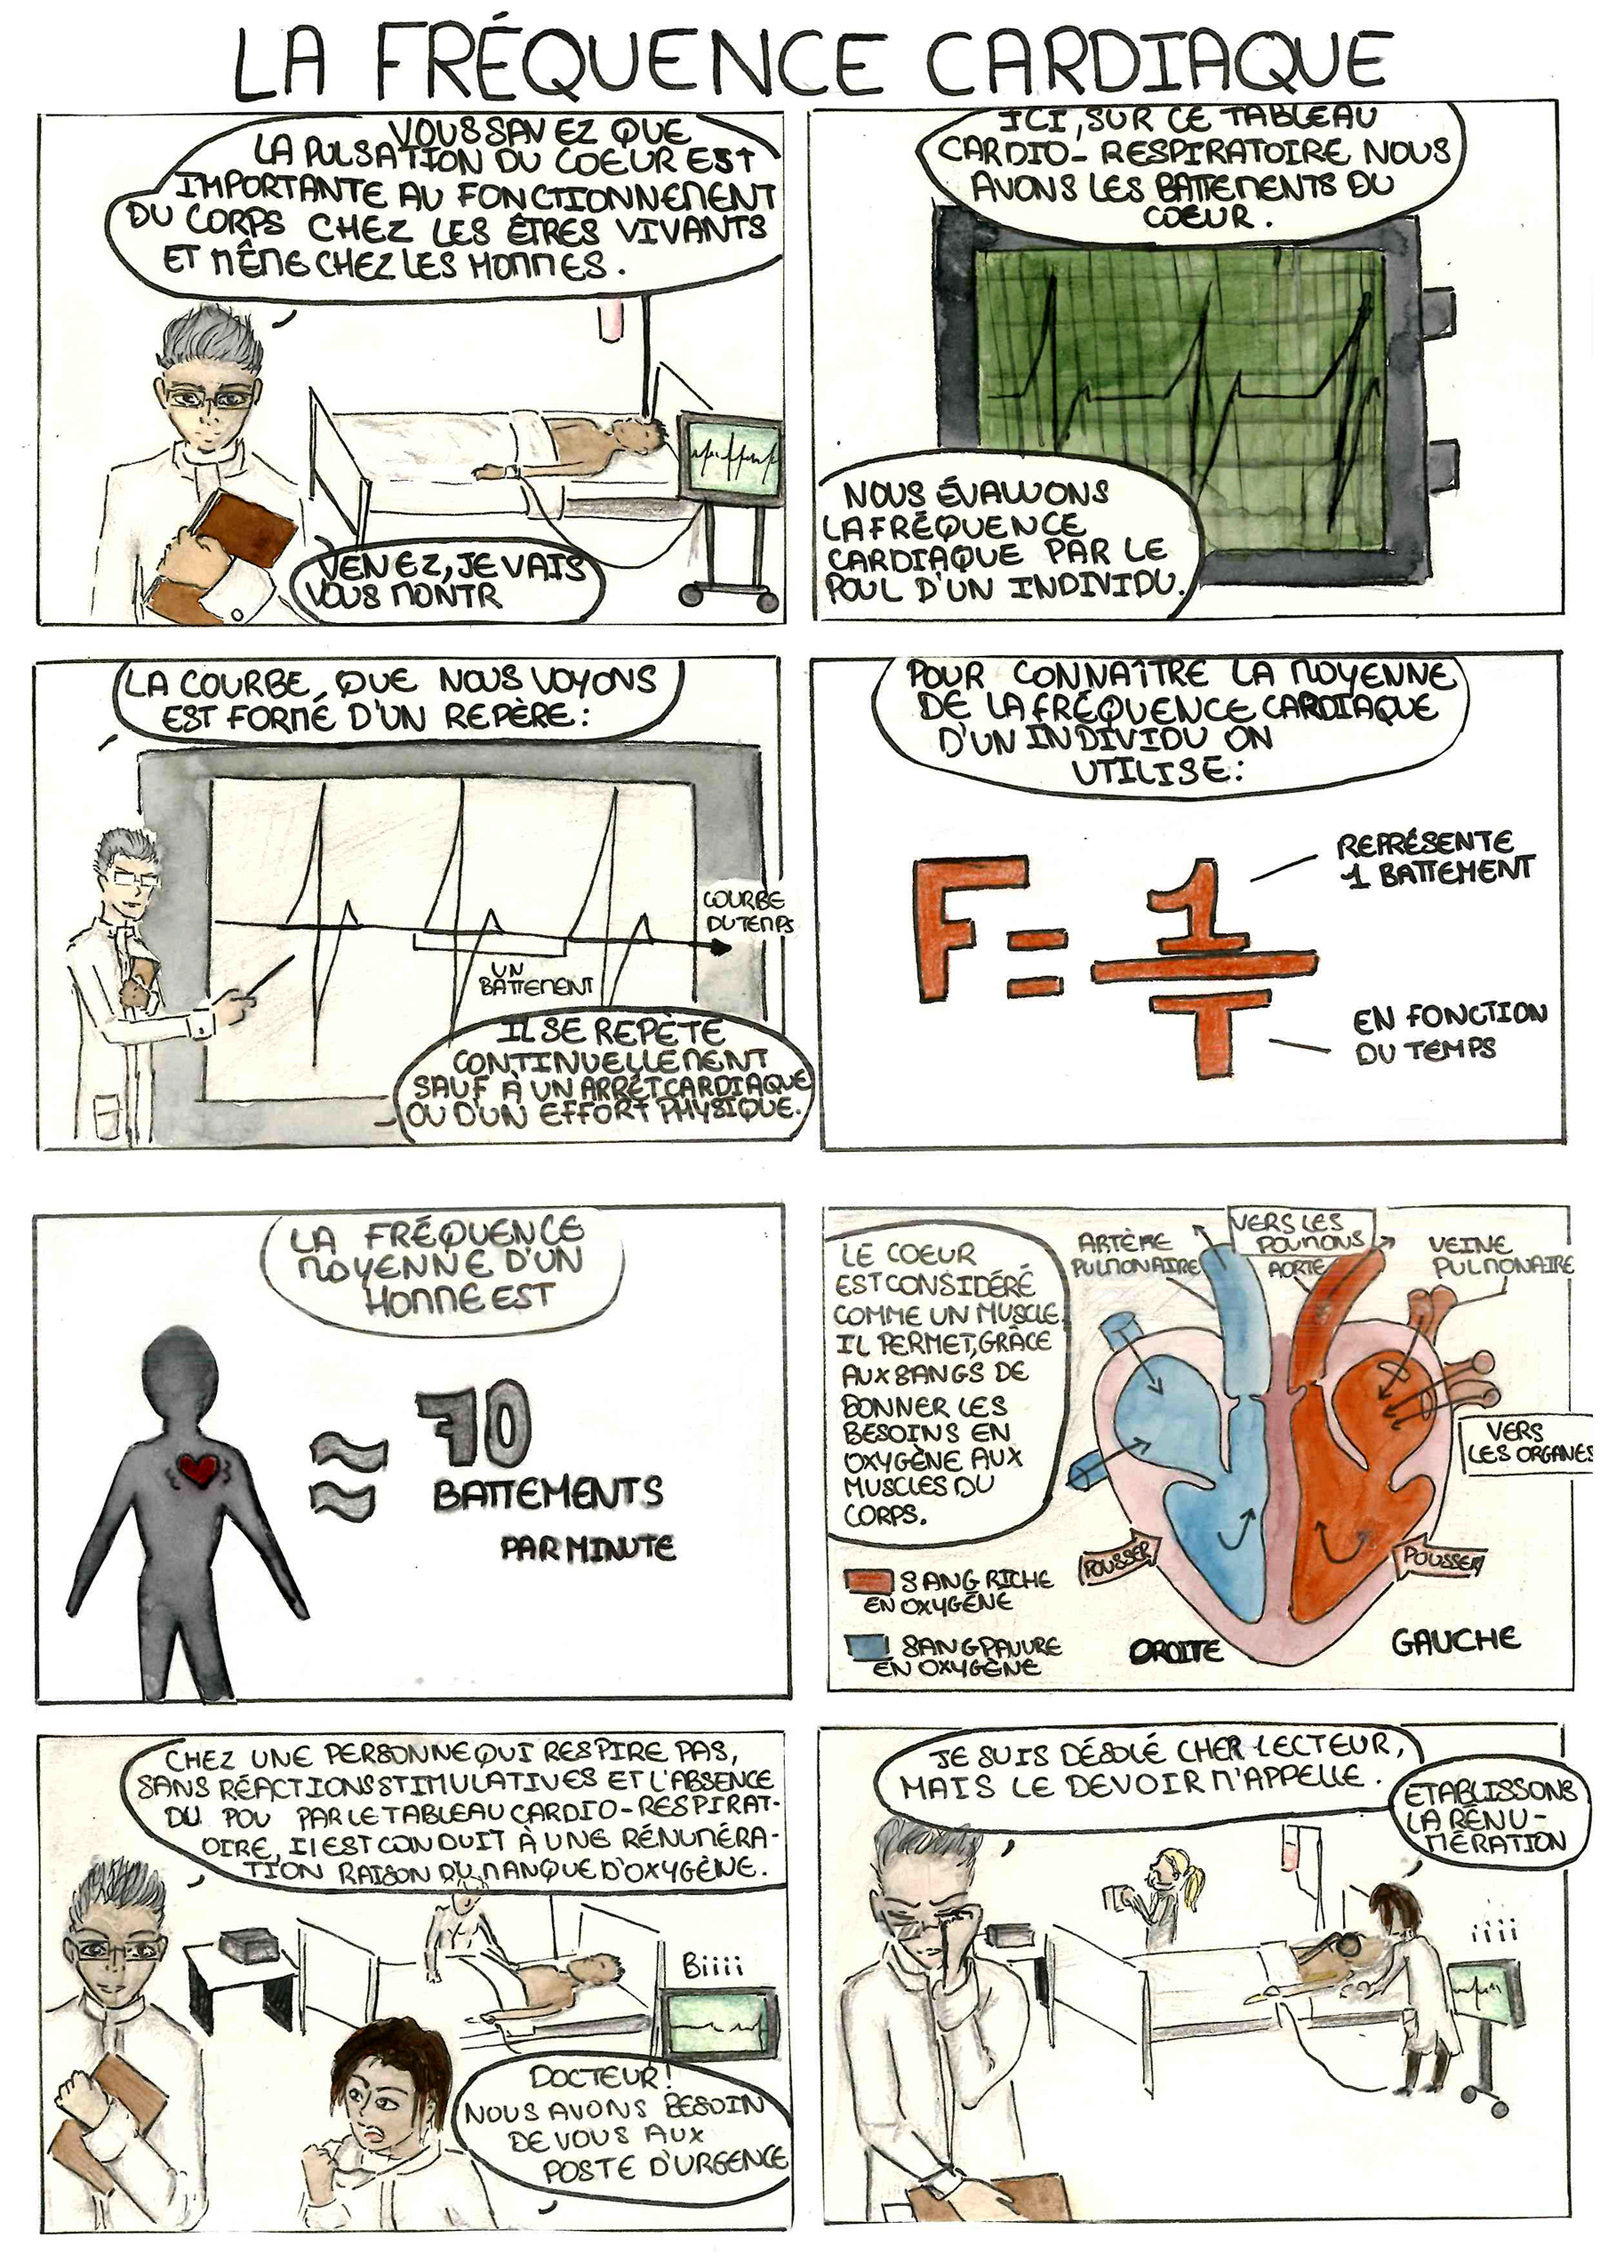 LA FRÉQUENCE CARDIAQUE
VOUS SAVEZ QUE
LA PULSATION DU COEUR EST
IMPORTANTE AU FONCTIONNEMENT
DU CORPS CHEZ LES ÊTRES VIVANTS
ET MÊME CHEZ LES HOMMES.
VENEZ, JE VAIS
VOUS MONTR
ICI, SUR CE TABLEAU
CARDIO-RESPIRATOIRE NOUS
AVONS LES BATTEMENTS DU
COEUR.
NOUS ÉVALUONS
LA FRÉQUENCE
CARDIAQUE PAR LE
POUL D'UN INDIVIDU.
LA COURBE, QUE NOUS VOYONS
EST FORMÉ D'UN REPÈRE:
COURBE
DU TEMPS
UN
BATTEMENT
IL SE REPÈTE
CONTINUELLEMENT
SAUF À UN ARRÊT CARDIAQUE
OU D'UN EFFORT PHYSIQUE.
POUR CONNAÎTRE LA MOYENNE
DE LA FRÉQUENCE CARDIAQUE
D'UN INDIVIDU ON
UTILISE:
F = 1/T
REPRÉSENTE
1 BATTEMENT
EN FONCTION
DU TEMPS
LA FRÉQUENCE
MOYENNE D'UN
HOMME EST
≈ 70
BATTEMENTS
PAR MINUTE
LE COEUR
EST CONSIDÉRÉ
COMME UN MUSCLE.
IL PERMET, GRÂCE
AUX SANGS DE
DONNER LES
BESOINS EN
OXYGÈNE AUX
MUSCLES DU
CORPS.
ARTÈRE
PULMONAIRE
VERS LES
POUMONS
AORTE
VEINE
PULMONAIRE
VERS
LES ORGANES
POUSSER
POUSSER
SANG RICHE
EN OXYGÉNE
SANG PAUVRE
EN OXYGÈNE
DROITE
GAUCHE
CHEZ UNE PERSONNE QUI RESPIRE PAS,
SANS RÉACTIONS STIMULATIVES ET L'ABSENCE
DU POU PAR LE TABLEAU CARDIO-RESPIRAT-
OIRE, IL EST CONDUIT À UNE RÉNUMÉRA-
TION RAISON DU MANQUE D'OXYGÈNE.
Biiii
DOCTEUR!
NOUS AVONS BESOIN
DE VOUS AUX
POSTE D'URGENCE
JE SUIS DÉSOLÉ CHER LECTEUR,
MAIS LE DEVOIR M'APPELLE.
ETABLISSONS
LA RÉNU-
MÉRATION
iiii